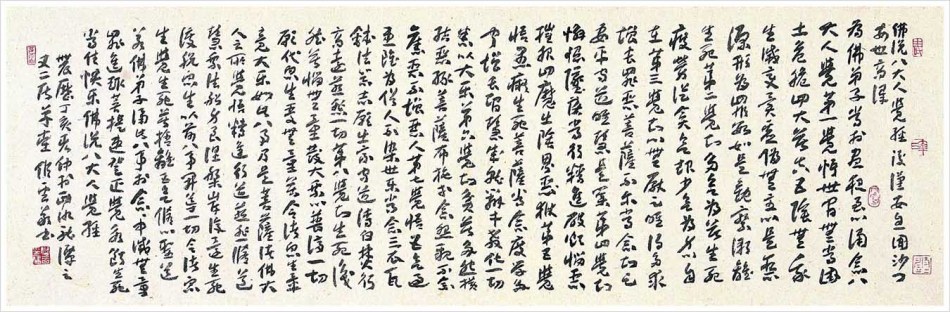 佛说八大人覺經 後漢安息国沙门
安世高譯
為佛弟子常於晝夜至心誦念八
大人覺第一覺悟世間無常國
土危脆四大苦空五陰無我
生滅變異虛偽無主心是惡
源形為罪藪如是觀察漸離
生死第二覺知多欲為苦生死
疲勞從貪欲起少欲無為身心自
在第三覺知心無厭足唯得多求
增長罪惡菩薩不爾常念知足
安貧守道唯慧是業第四覺知
懈怠墜落常行精進破煩惱惡
摧伏四魔出陰界獄第五覺
悟愚癡生死菩薩常念廣學多
聞增長智慧成就辯才教化一切
悉以大樂第六覺知貧苦多怨橫
結惡緣菩薩布施等念怨親不念
舊惡不憎惡人第七覺悟五欲過
患雖為俗人不染世樂常念三衣瓦
鉢法器志願出家守道清白梵行
高遠慈悲一切第八覺知生死熾
然苦惱無量發大乘心普濟一切
願代眾生受無量苦令諸眾生畢
竟大樂如此八事乃是菩薩諸佛大
人之所覺悟精進行道慈悲修
慧乘法身船至涅槃岸復還生死
度脫眾生以前八事開導一切令諸眾
生覺生死苦捨離五欲修心聖道
若佛弟子誦此八事於念念中滅無量
罪進趣菩提速登正覺永斷生死
常住快樂佛說八大人覺經
丁亥秋